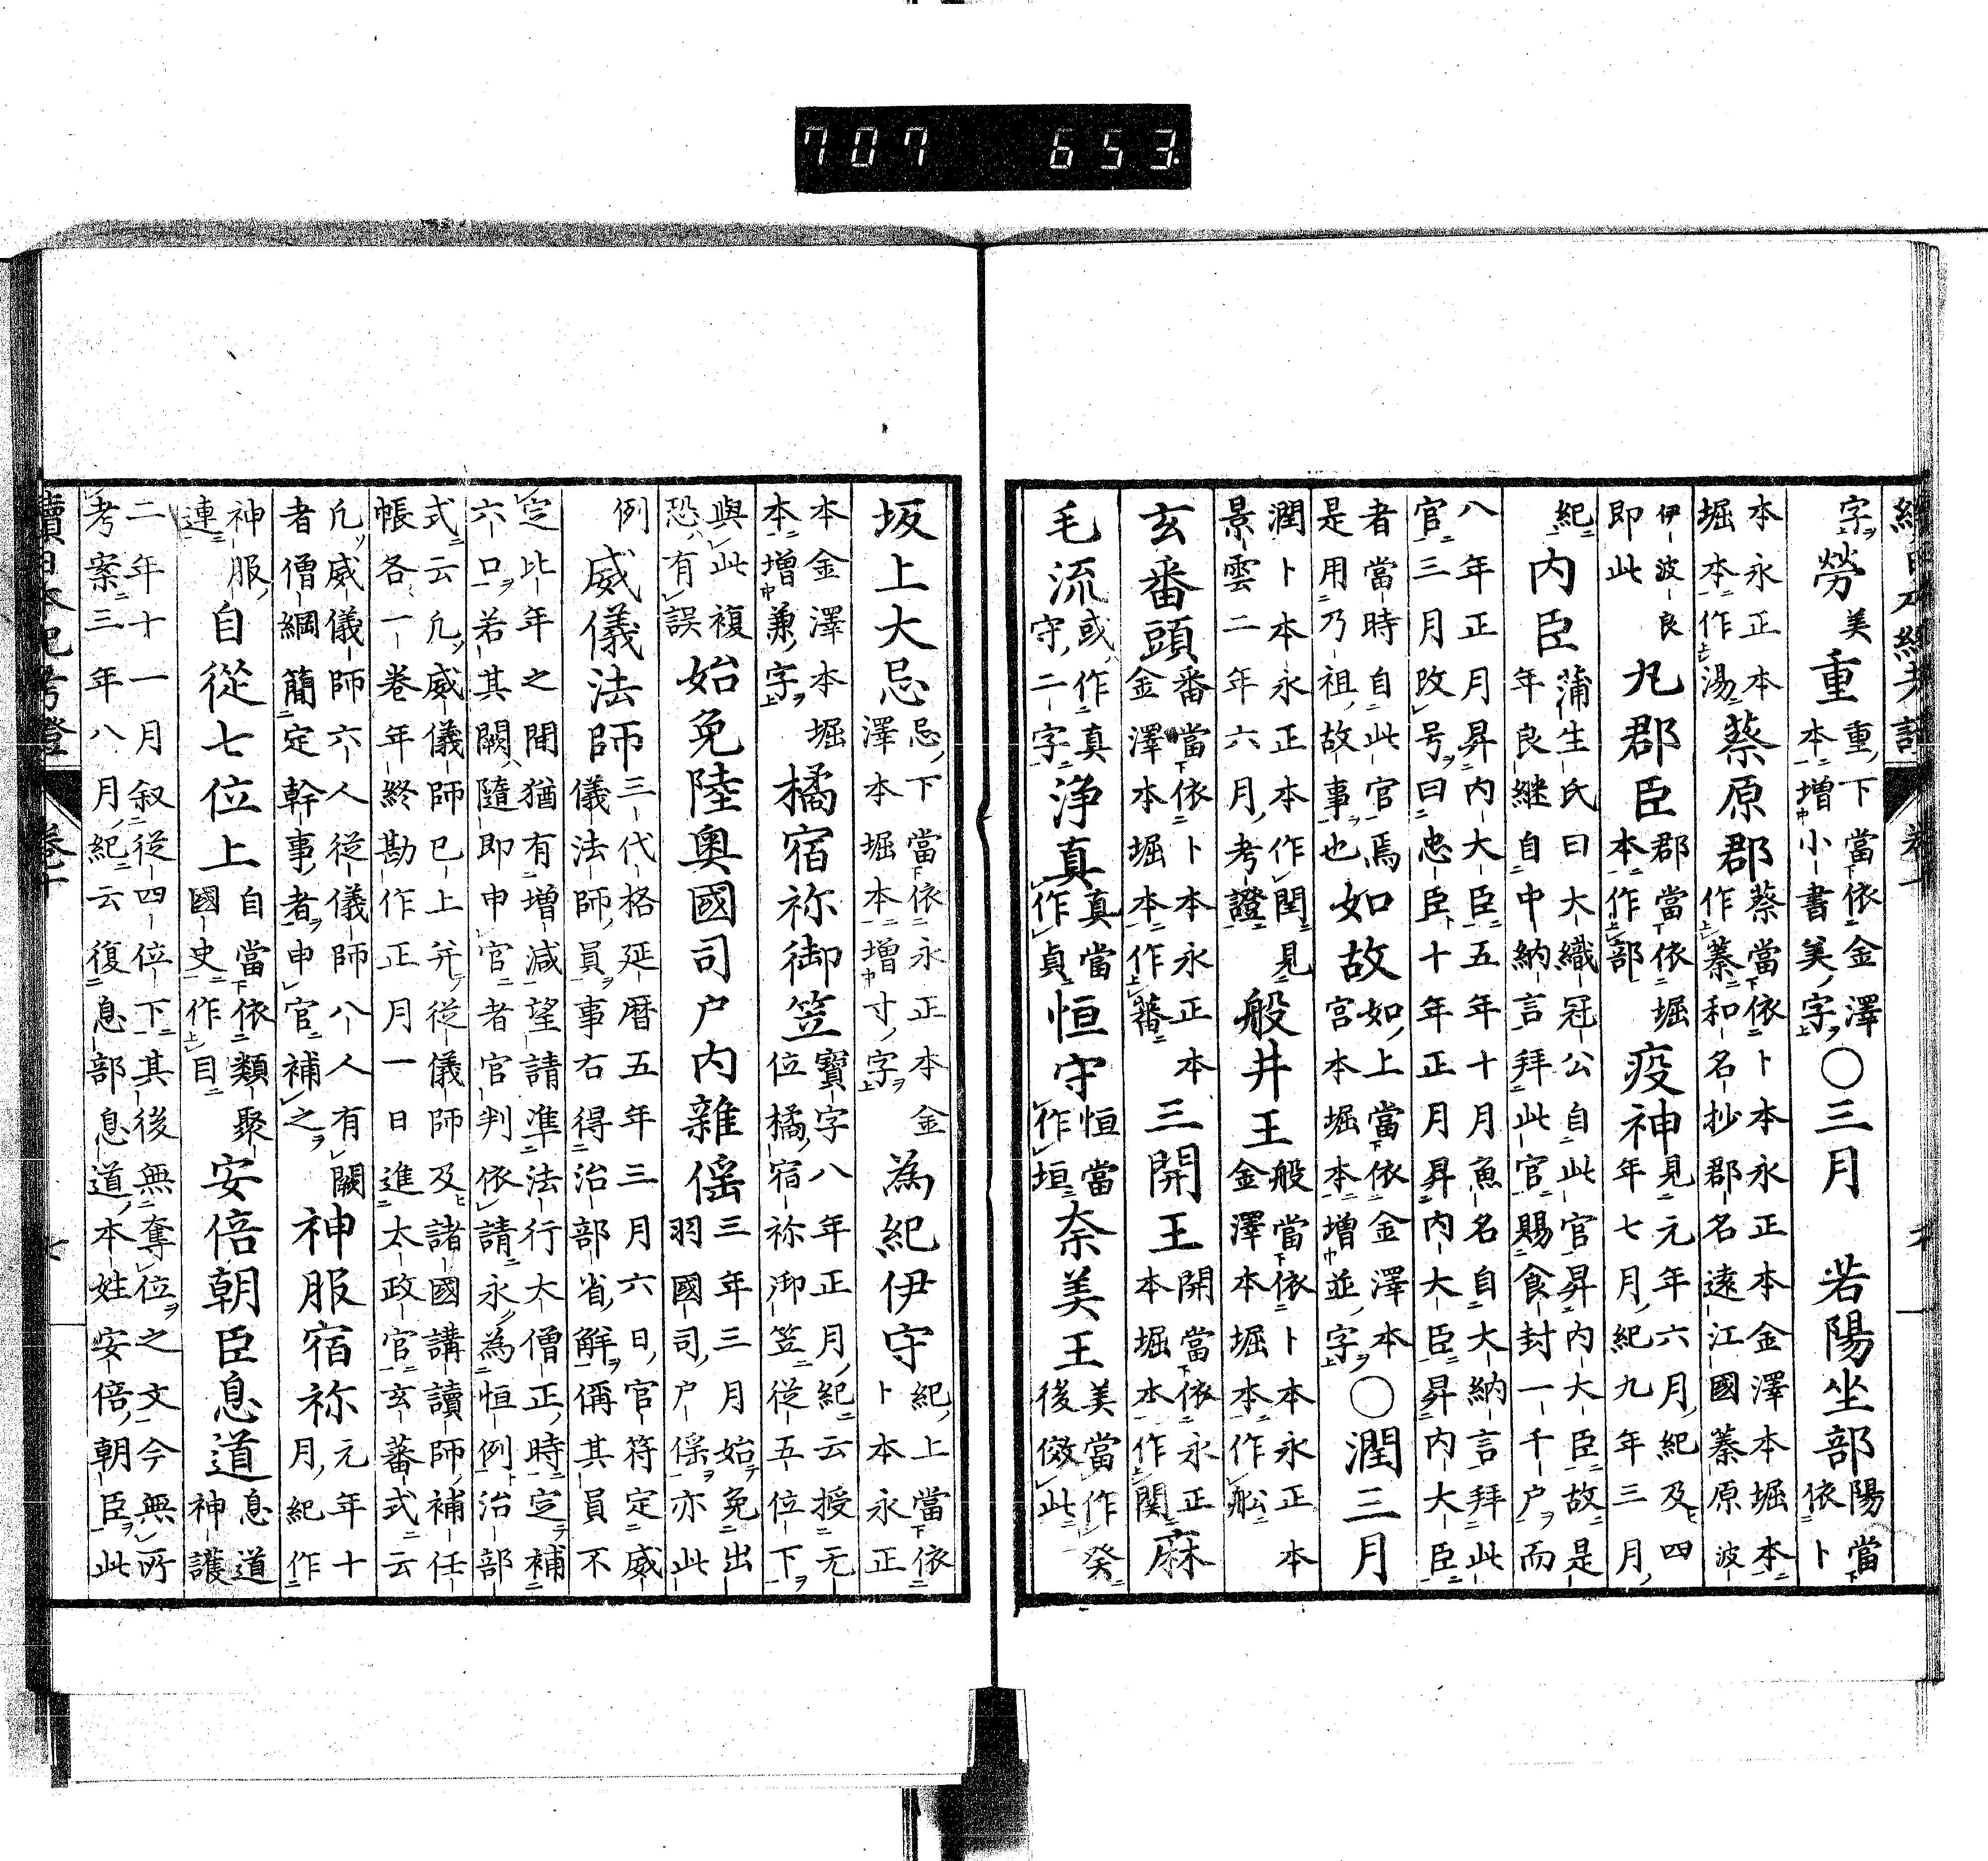 707 653.
字ヲ勞美重重下當依金澤本増小書美字○三月 若陽坐部陽當依卜
本永正本堀本作湯蔡原郡蔡當依卜本永正本金澤本堀本作蓁和名抄郡名遠江國蓁原波
伊波良即此九郡臣郡當依堀本作部疫神見元年六月紀及四年七月紀九年三月
紀内臣蒲生氏曰大織冠公自此官昇内大臣故是年良継自中納言拜此官賜食封一千户而
八年正月昇内大臣五年十月魚名自大納言拜此官三月改号曰忠臣十年正月昇内大臣昇内大臣
者當時自此官焉是用乃祖故事也如故如上當依金澤本宮本堀本増並字○潤三月
潤卜本永正本作閏見景雲二年六月考證般井王般當依卜本永正本金澤本堀本作舩
玄番頭番當依卜本永正本金澤本堀本作蕃三開王開當依永正本堀本作関麻
毛流或作真守二字浄真真當作貞恒守恒當作垣奈美王美當作癸後倣此
坂上大忌忌下當依永正本金澤本堀本増寸字為紀伊守紀上當依卜本永正
本金澤本堀本増兼字橘宿祢御笠寶字八年正月紀云授无位橘宿祢御笠従五位下
與此複恐有誤始免陸奥國司户内雜徭三年三月始免出羽國司户徭亦此
例威儀法師三代格延暦五年三月六日官符定威儀法師員事右得治部省解偁其員不
定比年之間猶有増減望請準法行大僧正時定補六口若其闕隨即申官者官判依請永為恒例治部
式云凢威儀師已上并従儀師及諸國講讀師補任帳各一卷年終勘作正月一日進太政官玄蕃式云
凢威儀師六人従儀師八人有闕者僧綱簡定幹事者申官補之神服宿祢元年十月紀作
神服連自從七位上自當依類聚國史作目安倍朝臣息道息道神護
二年十一月叙従四位下其後無奪位之文今無所考案三年八月紀云復息部息道本姓安倍朝臣此
續日本紀考證 卷十